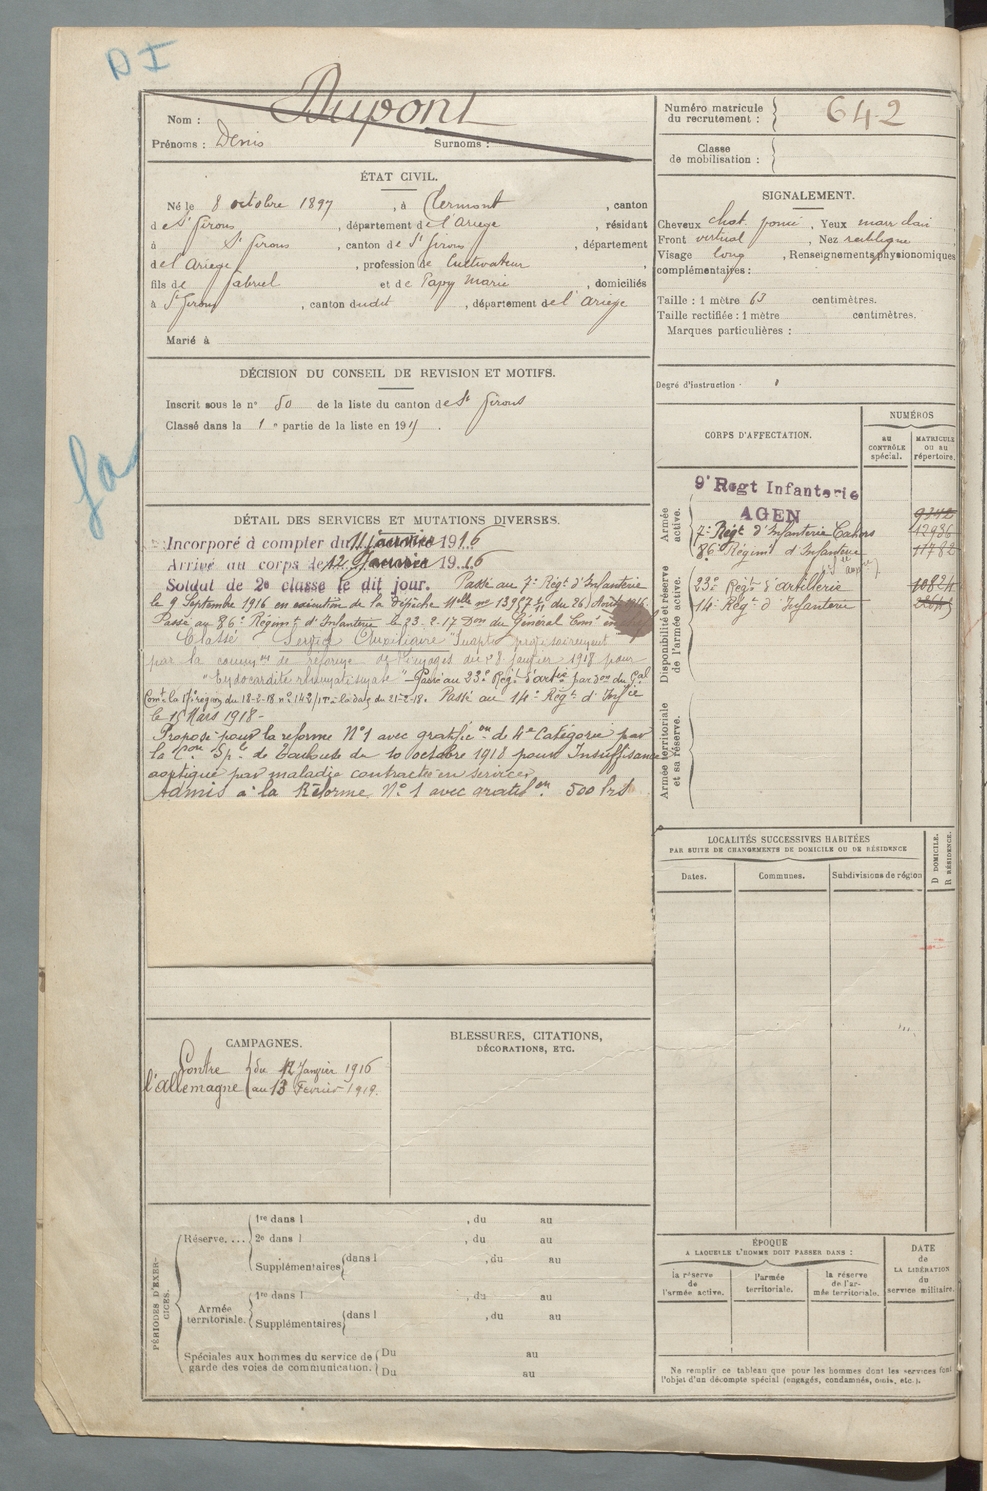 D I
Nom : Dupont
Prénoms : Denis Surnoms :
Numéro matricule du recrutement : 642
Classe de mobilisation :
ÉTAT CIVIL.
Né le 8 octobre 1897, à Clermont, canton
de St Girons, département de l'Ariège, résidant
à St Girons, canton de St Girons, département
de l'Ariège, profession de Cultivateur
fils de Gabriel et de Papy Marie, domiciliés
à St Girons, canton dudit, département de l'Ariège
Marié à
SIGNALEMENT.
Cheveux chat. foncé, Yeux marr clair
Front vertical, Nez rectiligne
Visage long, Renseignements physionomiques
complémentaires :
Taille : 1 mètre 63 centimètres.
Taille rectifiée : 1 mètre centimètres.
Marques particulières :
Degré d'instruction
DÉCISION DU CONSEIL DE REVISION ET MOTIFS.
Inscrit sous le n° 50 de la liste du canton de St Girons
Classé dans la 1e partie de la liste en 191
DÉTAIL DES SERVICES ET MUTATIONS DIVERSES.
Incorporé à compter du 11 janvier 1916
Arrivé au corps le 12 Janvier 1916
Soldat de 2e classe le dit jour. Passé au 7e Régt d'Infanterie
le 9 Septembre 1916 en exécution de la Dépêche Mlle no du 26 Août 1916.
Passé au 86e Régiment d'Infanterie le 23-2-17 Don du Général Comt en
Classé Service Auxiliaire "Inapte provisoirement
par la common de réforme de du 8 janvier 1918 pour
"Endocardite rhumatismale" - Passé au 23e Régt d'artie par Don du Gal
Comt la 17e région du 18-2-18 no 142/ à la date du 21-2-18. Passé au 14e Régt d'Infie
le 15 Mars 1918-
Proposé pour la réforme No 1 avec gratific on de 4e Catégorie par
la Con Sple de Toulouse du 10 octobre 1918 pour Insuffisance
aortique par maladie contractée en service
Admis à la Réforme No 1 avec gratif on 500 frs
CORPS D'AFFECTATION.
NUMÉROS
au CONTRÔLE spécial.
MATRICULE ou au répertoire.
Armée active.
9e Regt Infanterie
AGEN
7e Régt d'Infanterie Cahors 12936
86e Régimt d'Infanterie 11782
Disponibilité et réserve de l'armée active.
23e Régt d'artillerie
14e Régt d'Infanterie
Armée territoriale et sa réserve.
LOCALITÉS SUCCESSIVES HABITÉES
PAR SUITE DE CHANGEMENTS DE DOMICILE OU DE RÉSIDENCE
Dates. Communes. Subdivisions de région
D DOMICILE.
R RÉSIDENCE.
CAMPAGNES.
Contre l'Allemagne
du 12 Janvier 1916
au 13 Février 1919.
BLESSURES, CITATIONS,
DÉCORATIONS, ETC.
PÉRIODES D'EXERCICES.
Réserve....
1re dans l , du au
2e dans l , du au
Supplémentaires dans l , du au
Armée territoriale.
1re dans l , du au
Supplémentaires dans l , du au
Spéciales aux hommes du service de garde des voies de communication.
Du au
Du au
ÉPOQUE
A LAQUELLE L'HOMME DOIT PASSER DANS :
la réserve de l'armée active.
l'armée territoriale.
la réserve de l'armée territoriale.
DATE de LA LIBÉRATION du service militaire.
Ne remplir ce tableau que pour les hommes dont les services font
l'objet d'un décompte spécial (engagés, condamnés, omis, etc.).